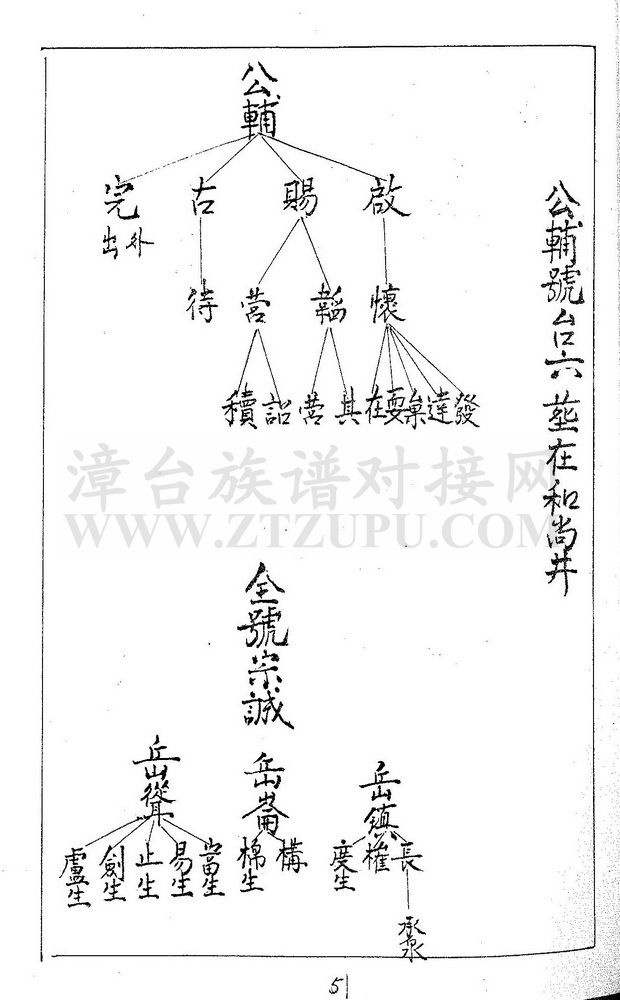 公輔號台六葬在和尚井
公輔
啟
賜
古
完
外出
懷
韜
营
待
發
達
在
其
营
詔
積
漳台族谱对接网
WWW.ZTZUPU.COM
全號宗誠
岳鎮
岳崙
岳聳
長
權
度生
構
棉生
當生
易生
止生
創生
盧生
51